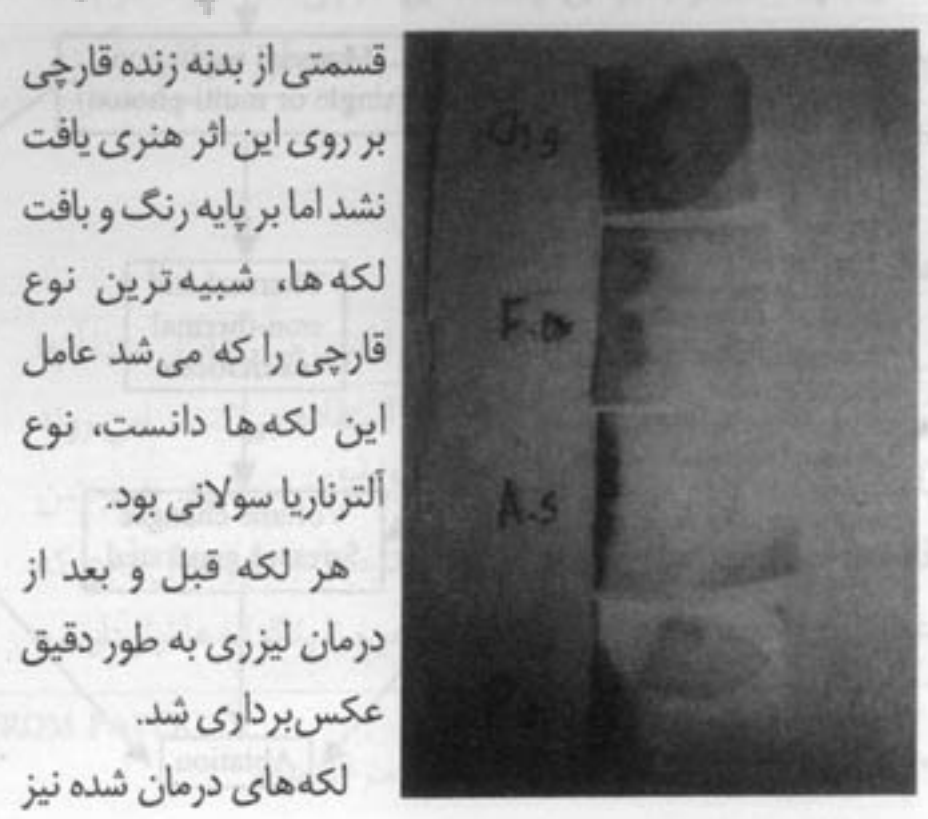 قسمتی از بدنه زنده قارچی
بر روی این اثر هنری یافت
نشد اما بر پایه رنگ و بافت
لکه ها، شبیه‌ترین نوع
قارچی را که می‌شد عامل
این لکه‌ها دانست، نوع
آلترناریا سولانی بود.
هر لکه قبل و بعد از
درمان لیزری به طور دقیق
عکس‌برداری شد.
لکه‌های درمان شده نیز
Ch.g
F.ox
A.S